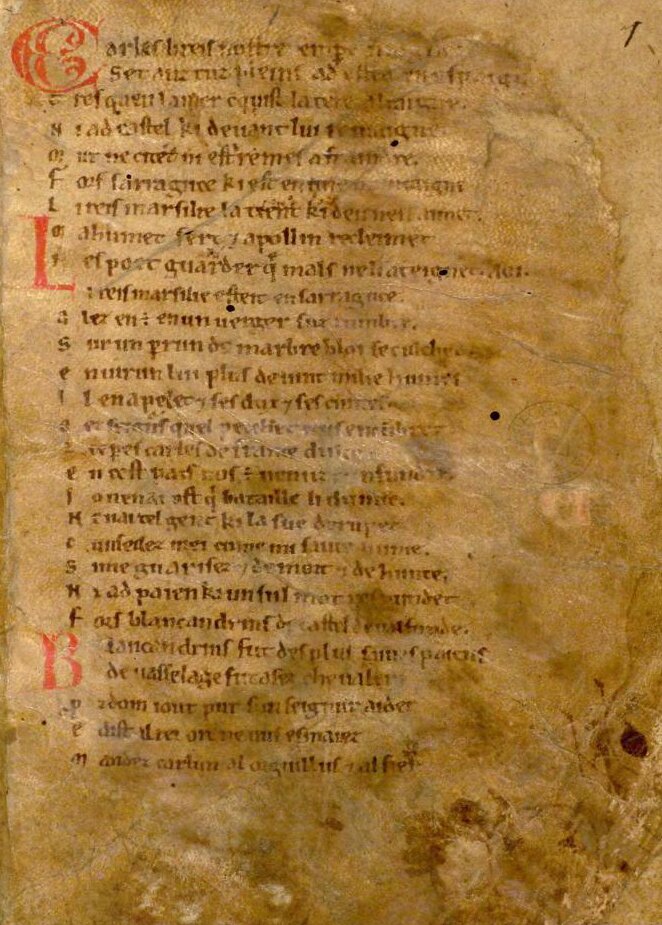 1
Carles li reis nostre emper
Set anz tuz pleins ad estet en espaigne
Tresqu'en la mer cquist la tere altaigne.
N i ad castel ki devant lui remaigne
M ur ne citet n i est remes a fraindre.
F ors sarraguce ki est en une muntaigne
L i reis marsilie la tient ki deu nen aimet.
M ahumet sert ⁊ apollin recleimet
N es poet guarder q̄ mals ne l i ateignet. Aoi.
L i reis marsilie esteit en sarraguce.
A lez en est en un verger suz l umbre.
S ur un perrun de marbre bloi se culchet
E nvirun lui plus de vint milie humes
I l en apelet ⁊ ses dux ⁊ ses cuntes
O ez seignurs quel pecchet nus encumbret
li empes carles de france dulce
E n cest pais nos est venuz cunfundre
I o nen ai ost q̄ bataille li dunne.
N en ai tel gent ki la sue derumpet
C unseilez mei cume mi saive hume.
S i me guarisez ⁊ de mort ⁊ de hunte.
N i ad paien ki un sul mot respundet
F ors blancandrins de castel de valfunde.
Blancandrins fut des plus saives paiens
de vasselage fut asez chevaler
P rozdom i out pur sun seignur aider
E dist al rei or ne vus esmaiez
M andez carlun al orguillus ⁊ al fier